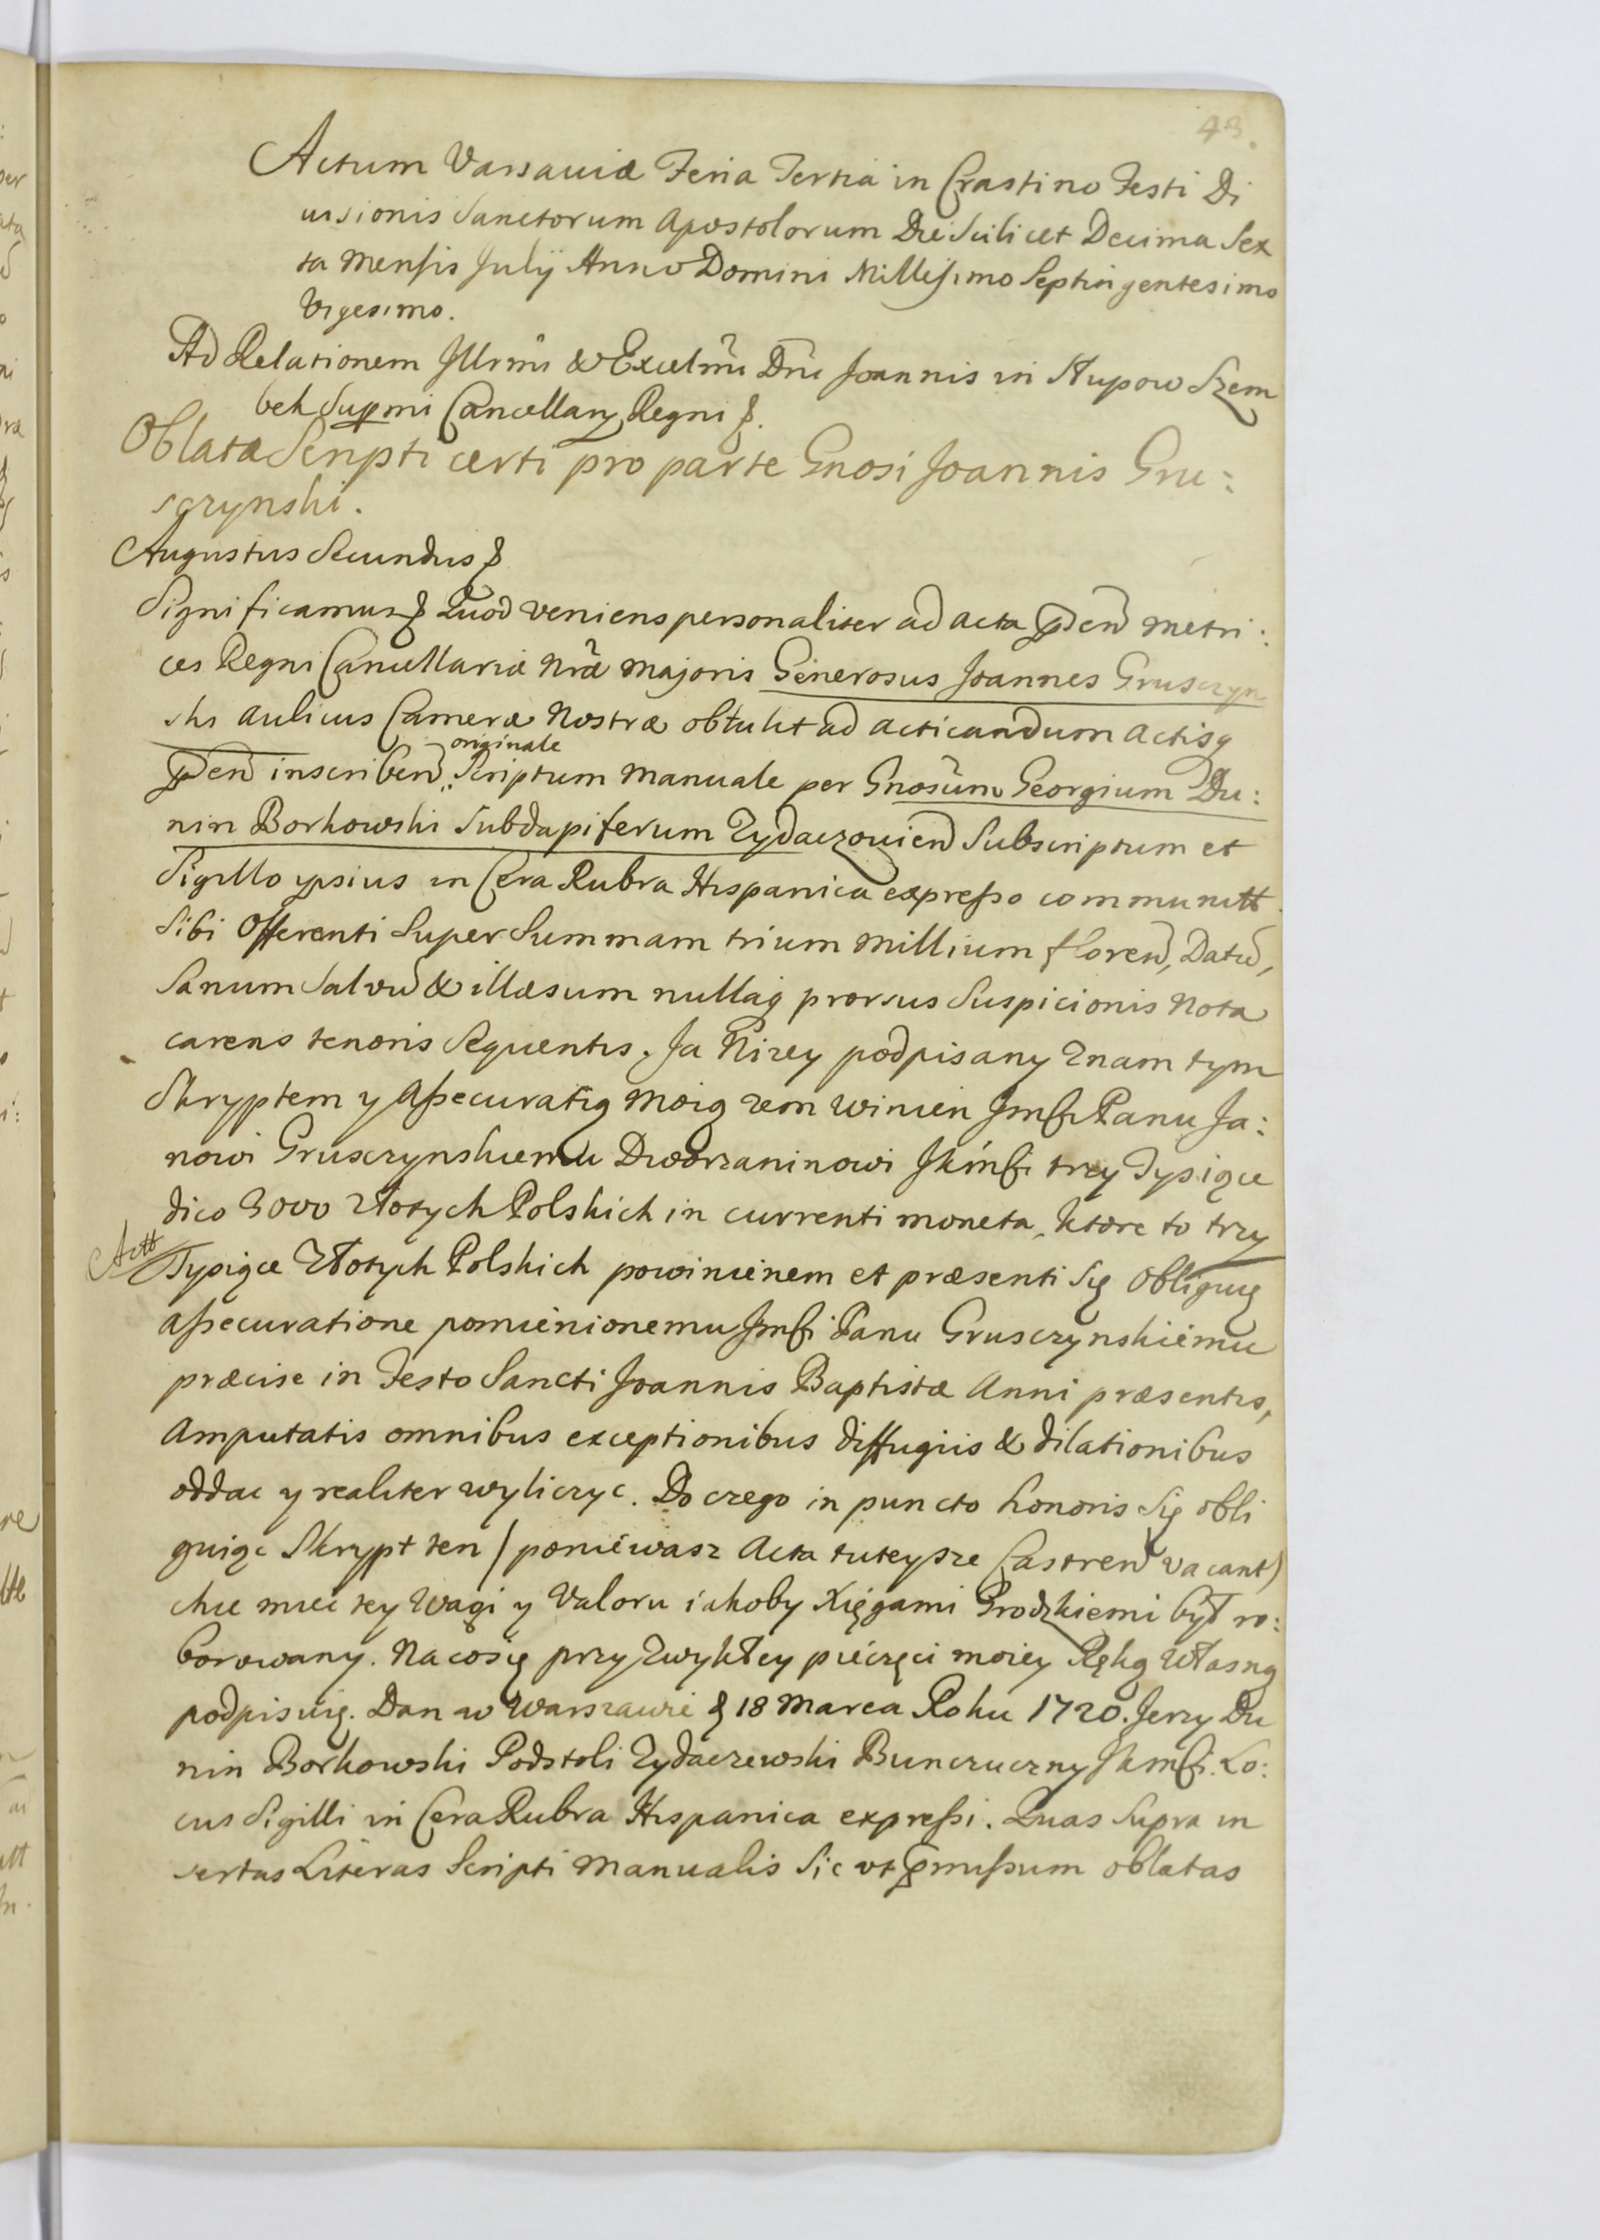 43.
Actum Varsaviæ Feria Tertia in Crastino Festi Di
uisionis Sanctorum Apostolorum Die Scilicet Decima Sex
ta Mensis Julÿ Anno Domini Millesimo Septingentesimo
Vigesimo.
Ad Relationem Illrmi & Excelmi Dni Joannis in Słupow Szem
bek Suppmi Cancellarÿ Regni &.
Oblata Scripti certi pro parte Gnosi Joannis Gru:
sczynski.
Augustus Secundus &
Significamus & Quod veniens personaliter ad acta pden Metri:
ces Regni Cancellariæ Nræ Majoris Generosus Joannes Grusczyn
ski Aulicus Cameræ Nostræ obtulit ad acticandum Actisq
originale
pden inscriben Scriptum Manuale per Gnosum Georgium Du:
nin Borkowski Subdapiferum Zydaczovien Subscriptum et
Sigillo ipsius in Cera Rubra Hispanica expresso communitt
Sibi Offerenti Super Summam trium Millium floren, Datu,
Sanum Salvu & illæsum nullaq prorsus Suspicionis Nota
carens tenoris Sequentis. Ja Nizey podpisany Znam tym
Skryptem y Assecuratią Moią zem winien Jmsci Panu Ja:
nowi Grusczynskiemu Dworzaninowi JKmsci trzy Tysiące
dico 3000 złotych Polskich in currenti moneta, ktore to trzy
Actt
Tysiące Złotych Polskich powinienem et præsenti Się Obliguię
assecuratione pomienionemu Jmsci Panu Grusczynskiemu
præcise in Festo Sancti Joannis Baptistæ Anni præsentis,
Amputatis omnibus exceptionibus diffugiis & dilationibus
oddac y realiter wyliczyc. Do czego in puncto honoris Się obli
guiąc Skrypt ten / poniewasz Acta tuteysze Castren vacant)
chce miec tey Wagi y Valoru iakoby Xięgami Grodzkiemi był ro:
borowany. Na co się przy Zwykłey pieczęci moiey Ręką Własną
podpisuię. Dan w Warszawie & 18 Marca Roku 1720. Jerzy Du
nin Borkowski Podstoli Zydaczewski Bunczuczny JKmsci. Lo:
cus Sigilli in Cera Rubra Hispanica expressi. Quas Supra in
sertas Literas Scripti Manualis Sic vt pmissum oblatas